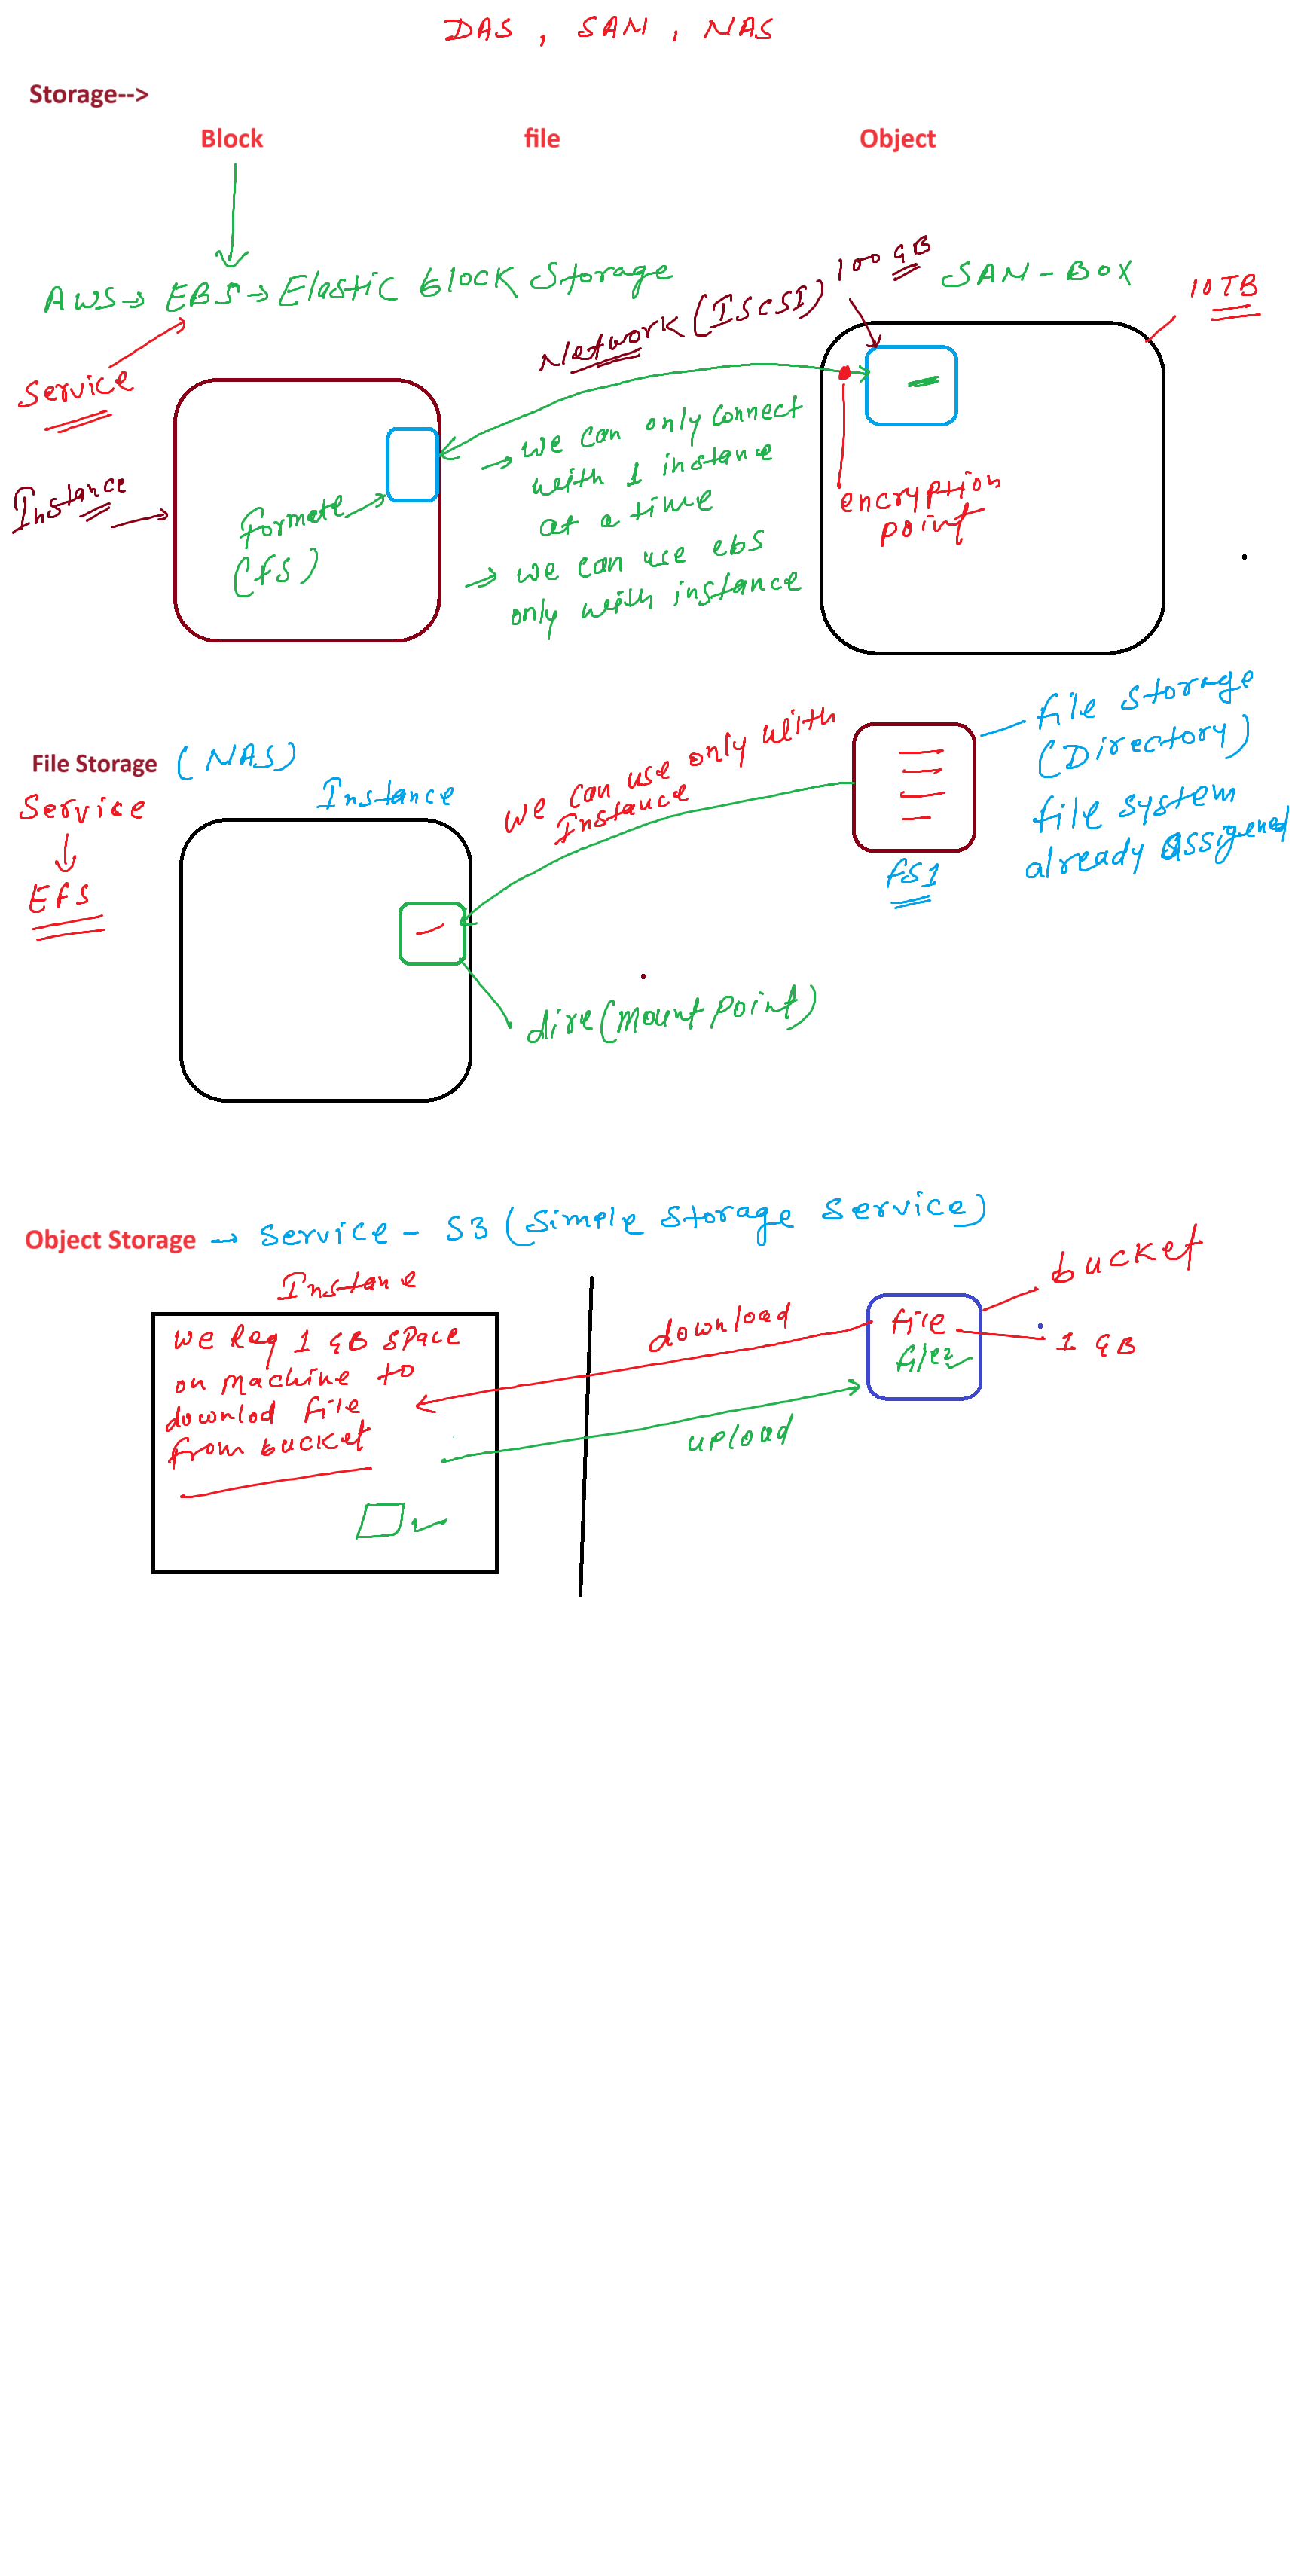 DAS , SAN , NAS
Storage-->
Block file Object
AWS → EBS → Elastic block Storage
Service
Network (ISCSI)
100 GB
SAN-BOX
10TB
Instance
formate
(fS)
→ we can only connect
with 1 instance
at a time
→ we can use ebs
only with instance
encryption
point
File Storage (NAS)
Service
EFS
Instance
we can use only with
Instance
file storage
(Directory)
file system
already assigened
fS1
dire(mount point)
Object Storage → Service - S3 (Simple Storage Service)
Instane
we Req 1 GB space
on machine to
downlod file
from bucket
download
upload
file
file2
bucket
1 GB